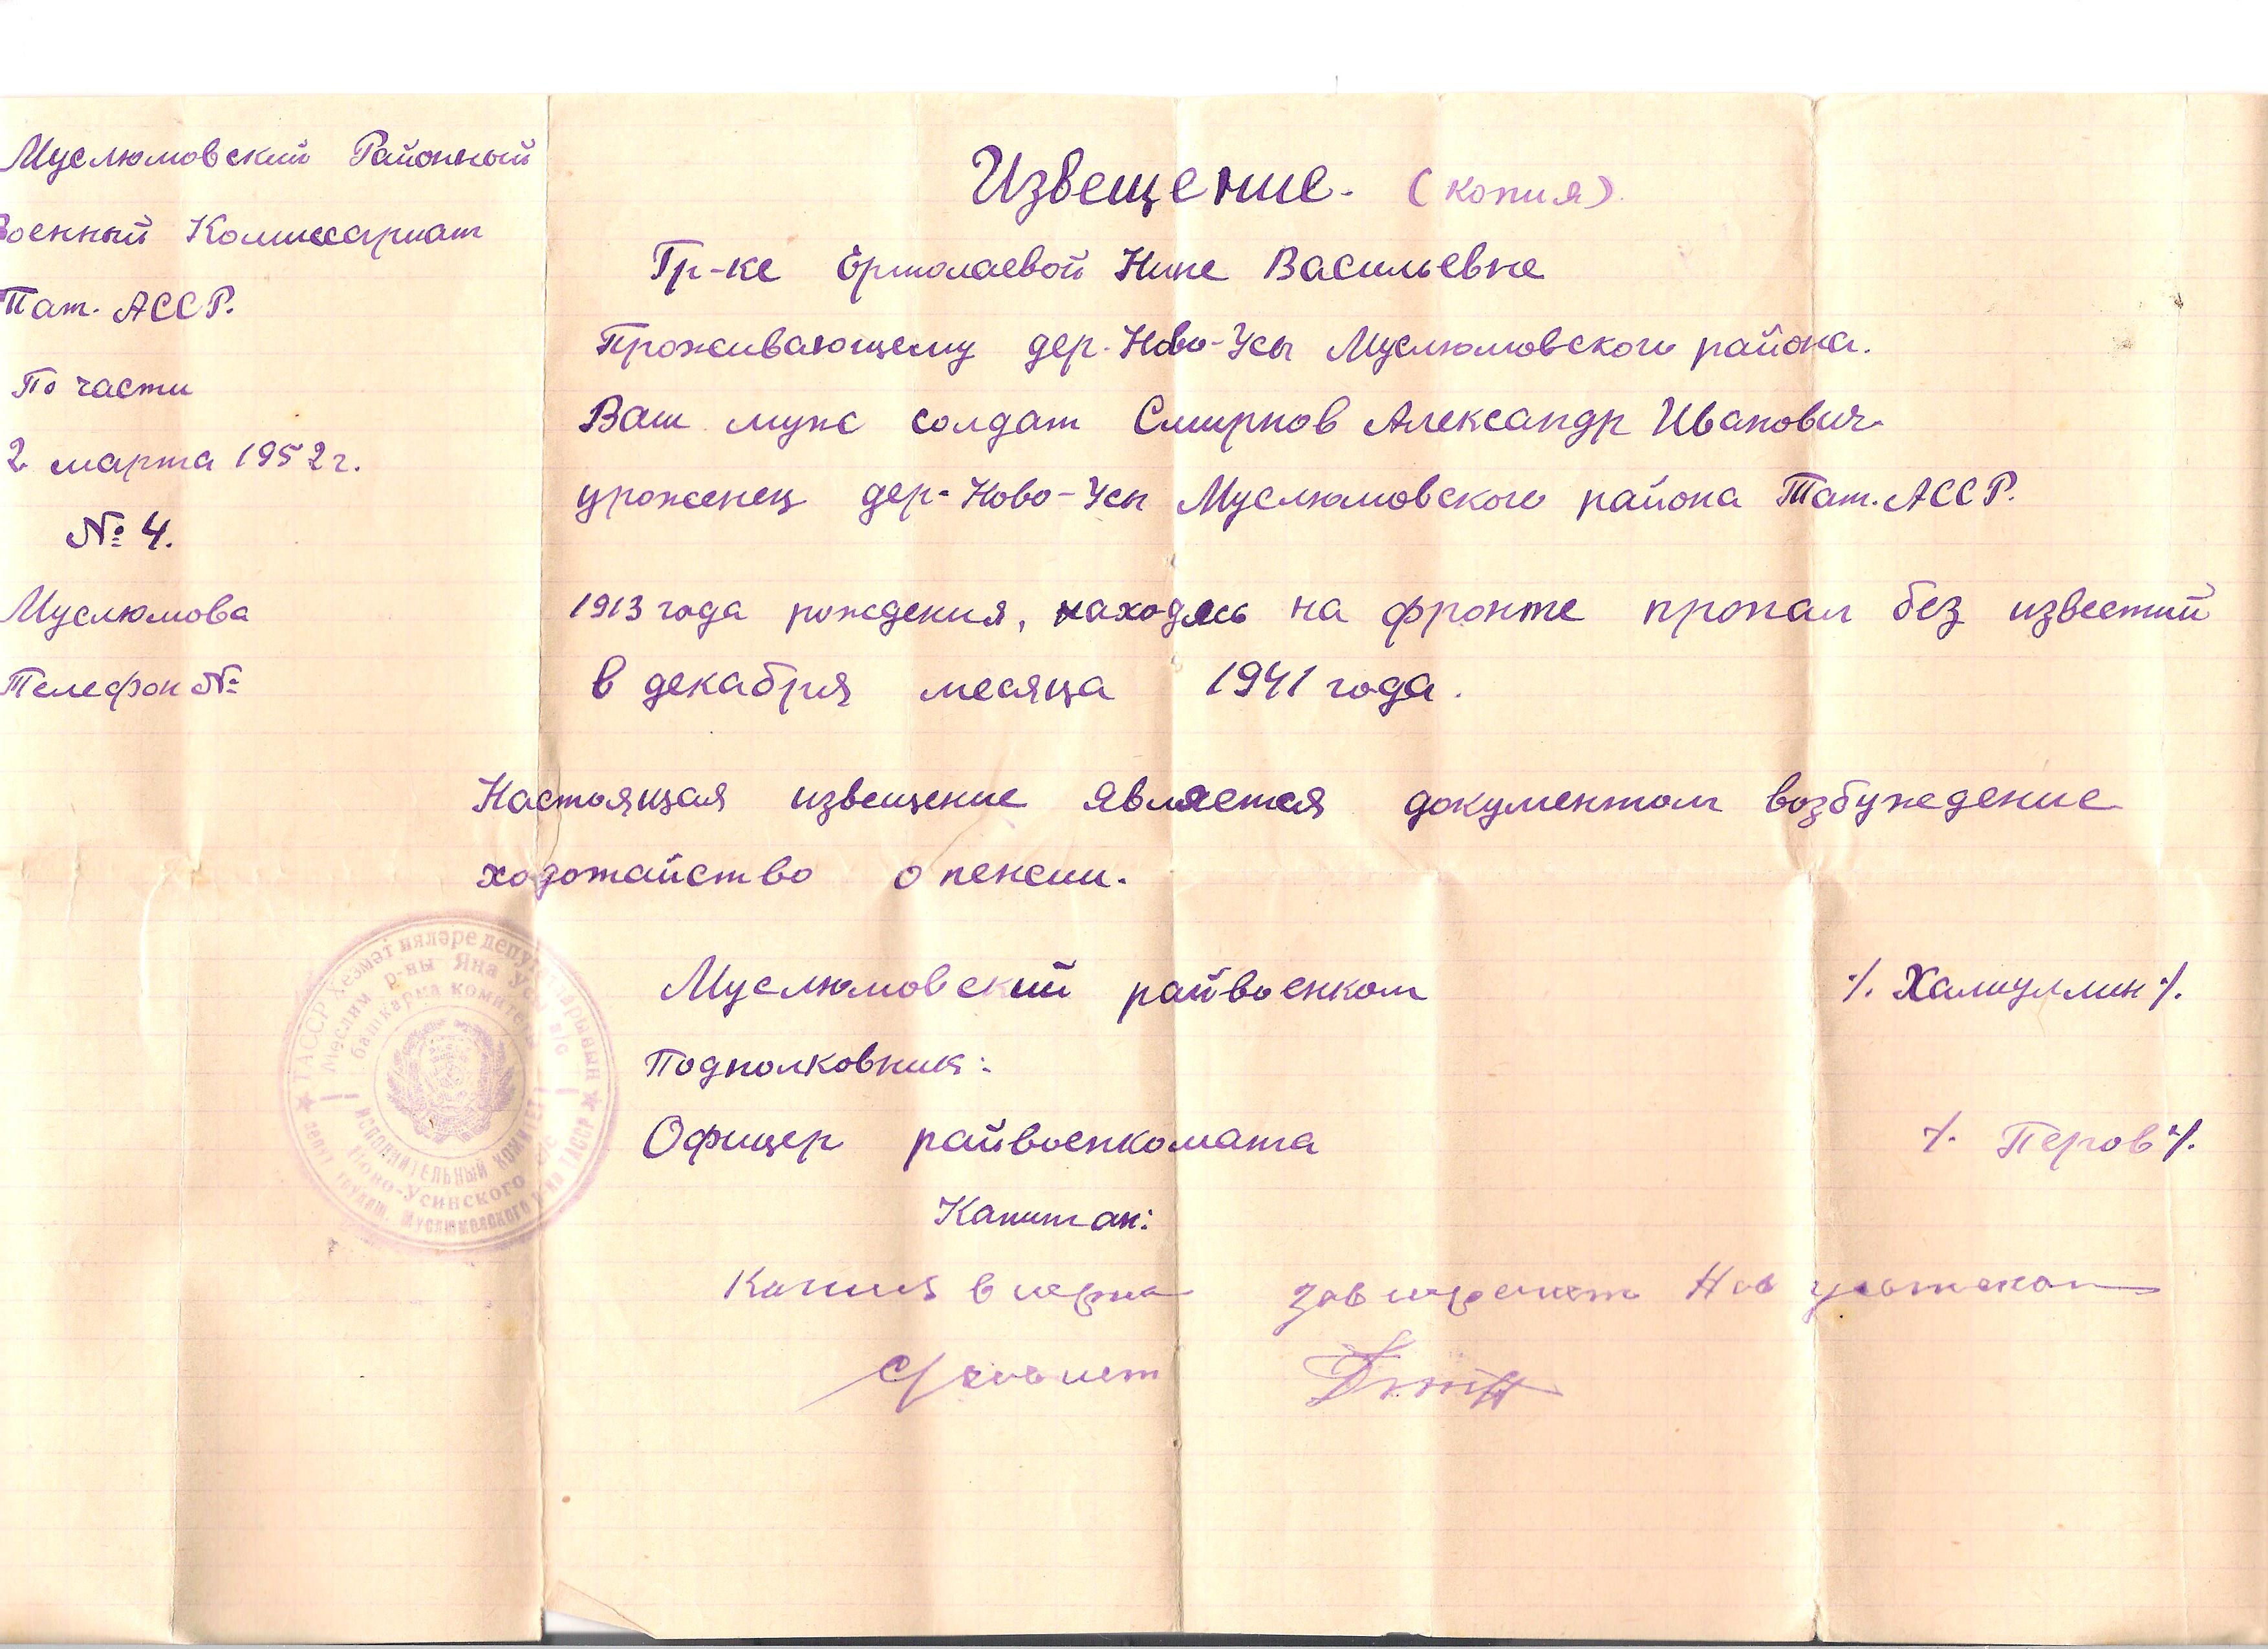 Муслюмовский Районный
Военный Комиссариат
Тат. АССР.
По части
2 марта 1952 г.
№ 4.
Муслюмова
Телефон №
Извещение. (копия)
Гр-ке Ермолаевой Нине Васильевне
Проживающему дер. Ново-Усы Муслюмовского района.
Ваш муж солдат Смирнов Александр Иванович
уроженец дер. Ново-Усы Муслюмовского района Тат. АССР.
1913 года рождения, находясь на фронте пропал без известий
в декабря месяца 1941 года.
Настоящая извещение является документом возбуждение
ходотайство о пенсии.
Муслюмовский райвоенком ./. Халиуллин ./.
Подполковник:
Офицер райвоенкомата ./. Перов ./.
Капитан:
Копия верна
ТАССР Хезмәт ияләре депутатларының
Мөслим р-ны Яңа Усы
башкарма комитеты
ИСПОЛНИТЕЛЬНЫЙ КОМИТЕТ
Ново-Усинского с/с
МУСЛЮМОВСКОГО Р-НА ТАССР